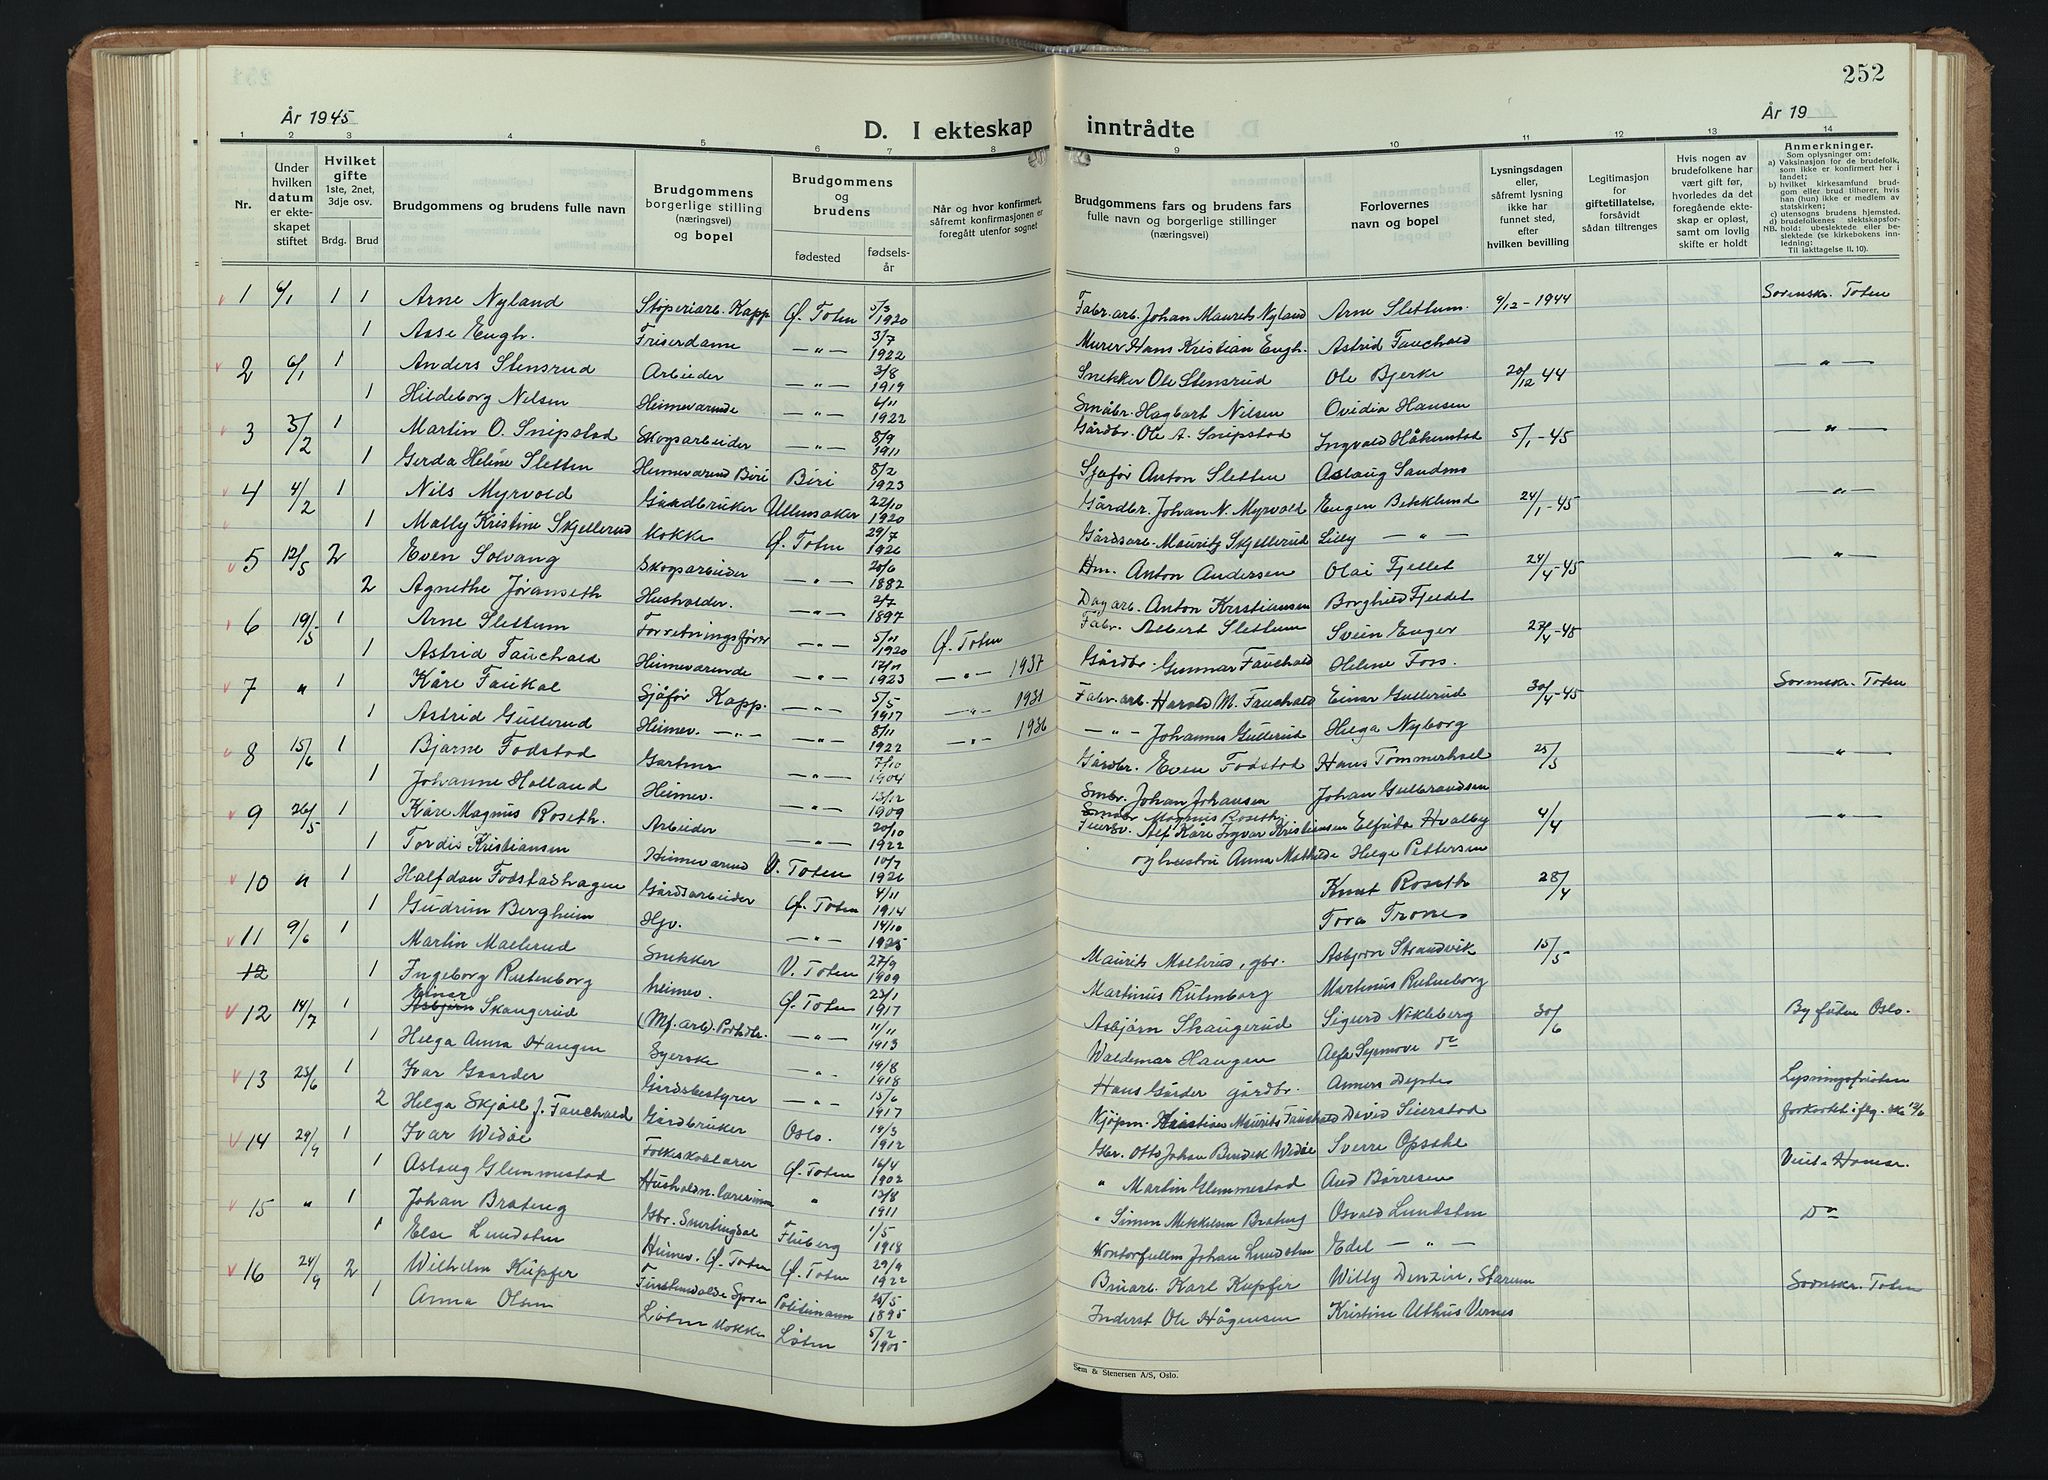 252
År 1945
År 19
D. I ekteskap inntrådte
1 2 3 4 5 6 7 8 9 10 11 12 13 14
Nr.
Under hvilken datum er ekteskapet stiftet
Hvilket gifte 1ste, 2net, 3dje osv.
Brdg. Brud
Brudgommens og brudens fulle navn
Brudgommens borgerlige stilling (næringsvei) og bopel
Brudgommens og brudens
fødested fødselsår
Når og hvor konfirmert, såfremt konfirmasjonen er foregått utenfor sognet
Brudgommens fars og brudens fars fulle navn og borgerlige stillinger (næringsvei)
Forlovernes navn og bopel
Lysningsdagen eller, såfremt lysning ikke har funnet sted, efter hvilken bevilling
Legitimasjon for giftetillatelse, forsåvidt sådan tiltrenges
Hvis nogen av brudefolkene har vært gift før, hvorledes da det foregående ekteskap er opløst, samt om lovlig skifte er holdt
Anmerkninger.
Som oplysninger om:
a) Vaksinasjon for de brudefolk, som ikke er konfirmert her i landet;
b) hvilket kirkesamfund brudgom eller brud tilhører, hvis han (hun) ikke er medlem av statskirken;
c) utensogns brudens hjemsted.
d) brudefolkenes slektskapsforhold: ubeslektede eller beslektede (se kirkebokens innledning:
NB.
Til iakttagelse II. 10).
1 6/1 1 1 Arne Nyland Støperiarb. Kapp Ø. Toten 5/3 1920 Fabr. arb. Johan Maurits Nyland Arne Slettum. 9/12 - 1944 Sorenskr. Toten
1 Aase Engh. Friserdame — " — 3/7 1922 Murer Hans Kristian Engh. Astrid Fauchald
2 6/1 1 Anders Stensrud Arbeider — " — 3/8 1919 Snekker Ole Stensrud Ole Bjerke 20/12 44 — " —
1 Hildeborg Nilsen Heimeværende — " — 6/11 1922 Småbr. Hagbart Nilsen Ovidia Hansen
3 3/2 1 Martin O. Snipstad Skogsarbeider — " — 8/9 1911 Gårdbr. Ole A. Snipstad Ingvald Håkenstad 5/1 - 45 — " —
1 Gerda Heléne Sletten Heimeværend Biri Biri 8/2 1923 Sjåfør Anton Sletten Aslaug Sandmo
4 4/2 1 Nils Myrvold Gårdbruker Ullensaker 22/10 1920 Gårdbr. Johan N. Myrvold Eugen Bekklund 24/1 - 45 — " —
1 Mally Kristine Skjellerud Kokke Ø. Toten 29/7 1926 Gårdsarb. Mauritz Skjellerud Lilly — " —
5 12/5 2 Even Solvang Skogsarbeider — " — 20/6 1882 Hm. Anton Andersen Olai Fjellet 24/4 - 45 — " —
2 Agnethe Jøranseth Husholder. — " — 2/7 1897 Dagarb. Anton Kristiansen Borghild Fjeldet
6 19/5 1 Arne Slettum Forretningsfører — " — 5/11 1920 Ø. Toten Fabr. Albert Slettum Svein Enger 27/4 - 45
1 Astrid Fauchald Heimeværende — " — 17/11 1923 — " — 1937 Gårdbr. Gunnar Fauchald Helene Foss.
7 " 1 Kåre Faukal Sjåfør Kapp. — " — 5/5 1917 — " — 1931 Fabr. arb. Harald M. Fauchald Einar Gullerud 30/4 - 45 Sorenskr. Toten
1 Astrid Gullerud Heimev. — " — — " — 8/11 1922 — " — 1936 — " — Johannes Gullerud Helga Nyborg
8 15/6 1 Bjarne Fodstad Gartner — " — 7/10 1904 Gårdbr. Even Fodstad Hans Tømmerhol 25/5 — " —
1 Johanne Holland Heimev. — " — 13/12 1909 Smbr. Johan Johansen Johan Gulbrandsen
9 26/5 1 Kåre Magnus Roseth. Arbeider — " — 20/10 1922 Småbr. Magnus Roseth. Elfrida Hvalby 4/4 — " —
1 Tordis Kristiansen Heimeværend V. Toten 10/7 1926 Alf Kåre Ingvar Kristiansen og hustru Anna Mathilde Helge Pettersen
10 " 1 Halfdan Fodstadhagen Gårdsarbeider Ø. Toten 4/11 1914 Knut Roseth 28/4
1 Gudrun Bergheim Hjv. — " — 14/10 1925 Tora Trones
11 9/6 1 Martin Mælerud Snekker V. Toten 27/9 1909 Maurits Mælerud, gbr. Asbjørn Strandvik 15/5
12 1 Ingeborg Rutenborg heimev. Ø. Toten 23/1 1917 Martinus Rutenborg Martinus Rutenborg
12 14/7 1 Einar Asbjørn Skaugerud (Mf. arb.) — " — 11/11 1913 Asbjørn Skaugerud Sigurd Nikleberg 30/6 Byfuten Oslo.
1 Helga Anna Haugen Syerske — " — 19/8 1918 Waldemar Haugen Do
13 23/6 1 Ivar Gaarder Gårdsbestyrer — " — 15/6 1917 Hans Gaarder gårdbr. Lysningsfristen
2 Helga Skjåll f. Fauchald Gårdbruker Oslo. 19/3 1912 Kjøpm. Kristian Maurits Fauchald David Seierstad forkortet i flg. skr 12/6
14 29/9 1 Ivar Widøe Folkeskolelærer Ø. Toten 16/4 1902 Gbr. Otto Johan Bendik Widøe Sverre Opsahl
1 Aslaug Glemmestad Husholdn. lærerinne " 13/8 1911 " Martin Glemmestad Aud Børresen
15 " 1 Johan Brateng Gbr. Snertingdal Fluberg 1/5 1918 " Simen Mikkelsen Brateng Osvald Lundsten Do
1 Else Lundsten Heimev. Ø. Toten Ø. Toten 29/9 1922 Kontorfullm. Johan Lundsten Edel — " —
16 24/9 2 Wilhelm Küpfer Politimann 25/5 1895 Bruarb. Karl Küpfer Willy Denzin, Starum Sorenskr. Toten
1 Anna Olsen Løten Kokke Løten 5/2 1905 Inderst Ole Hågensen Kristine Uthus Vernes
Sem & Stenersen A/S, Oslo.